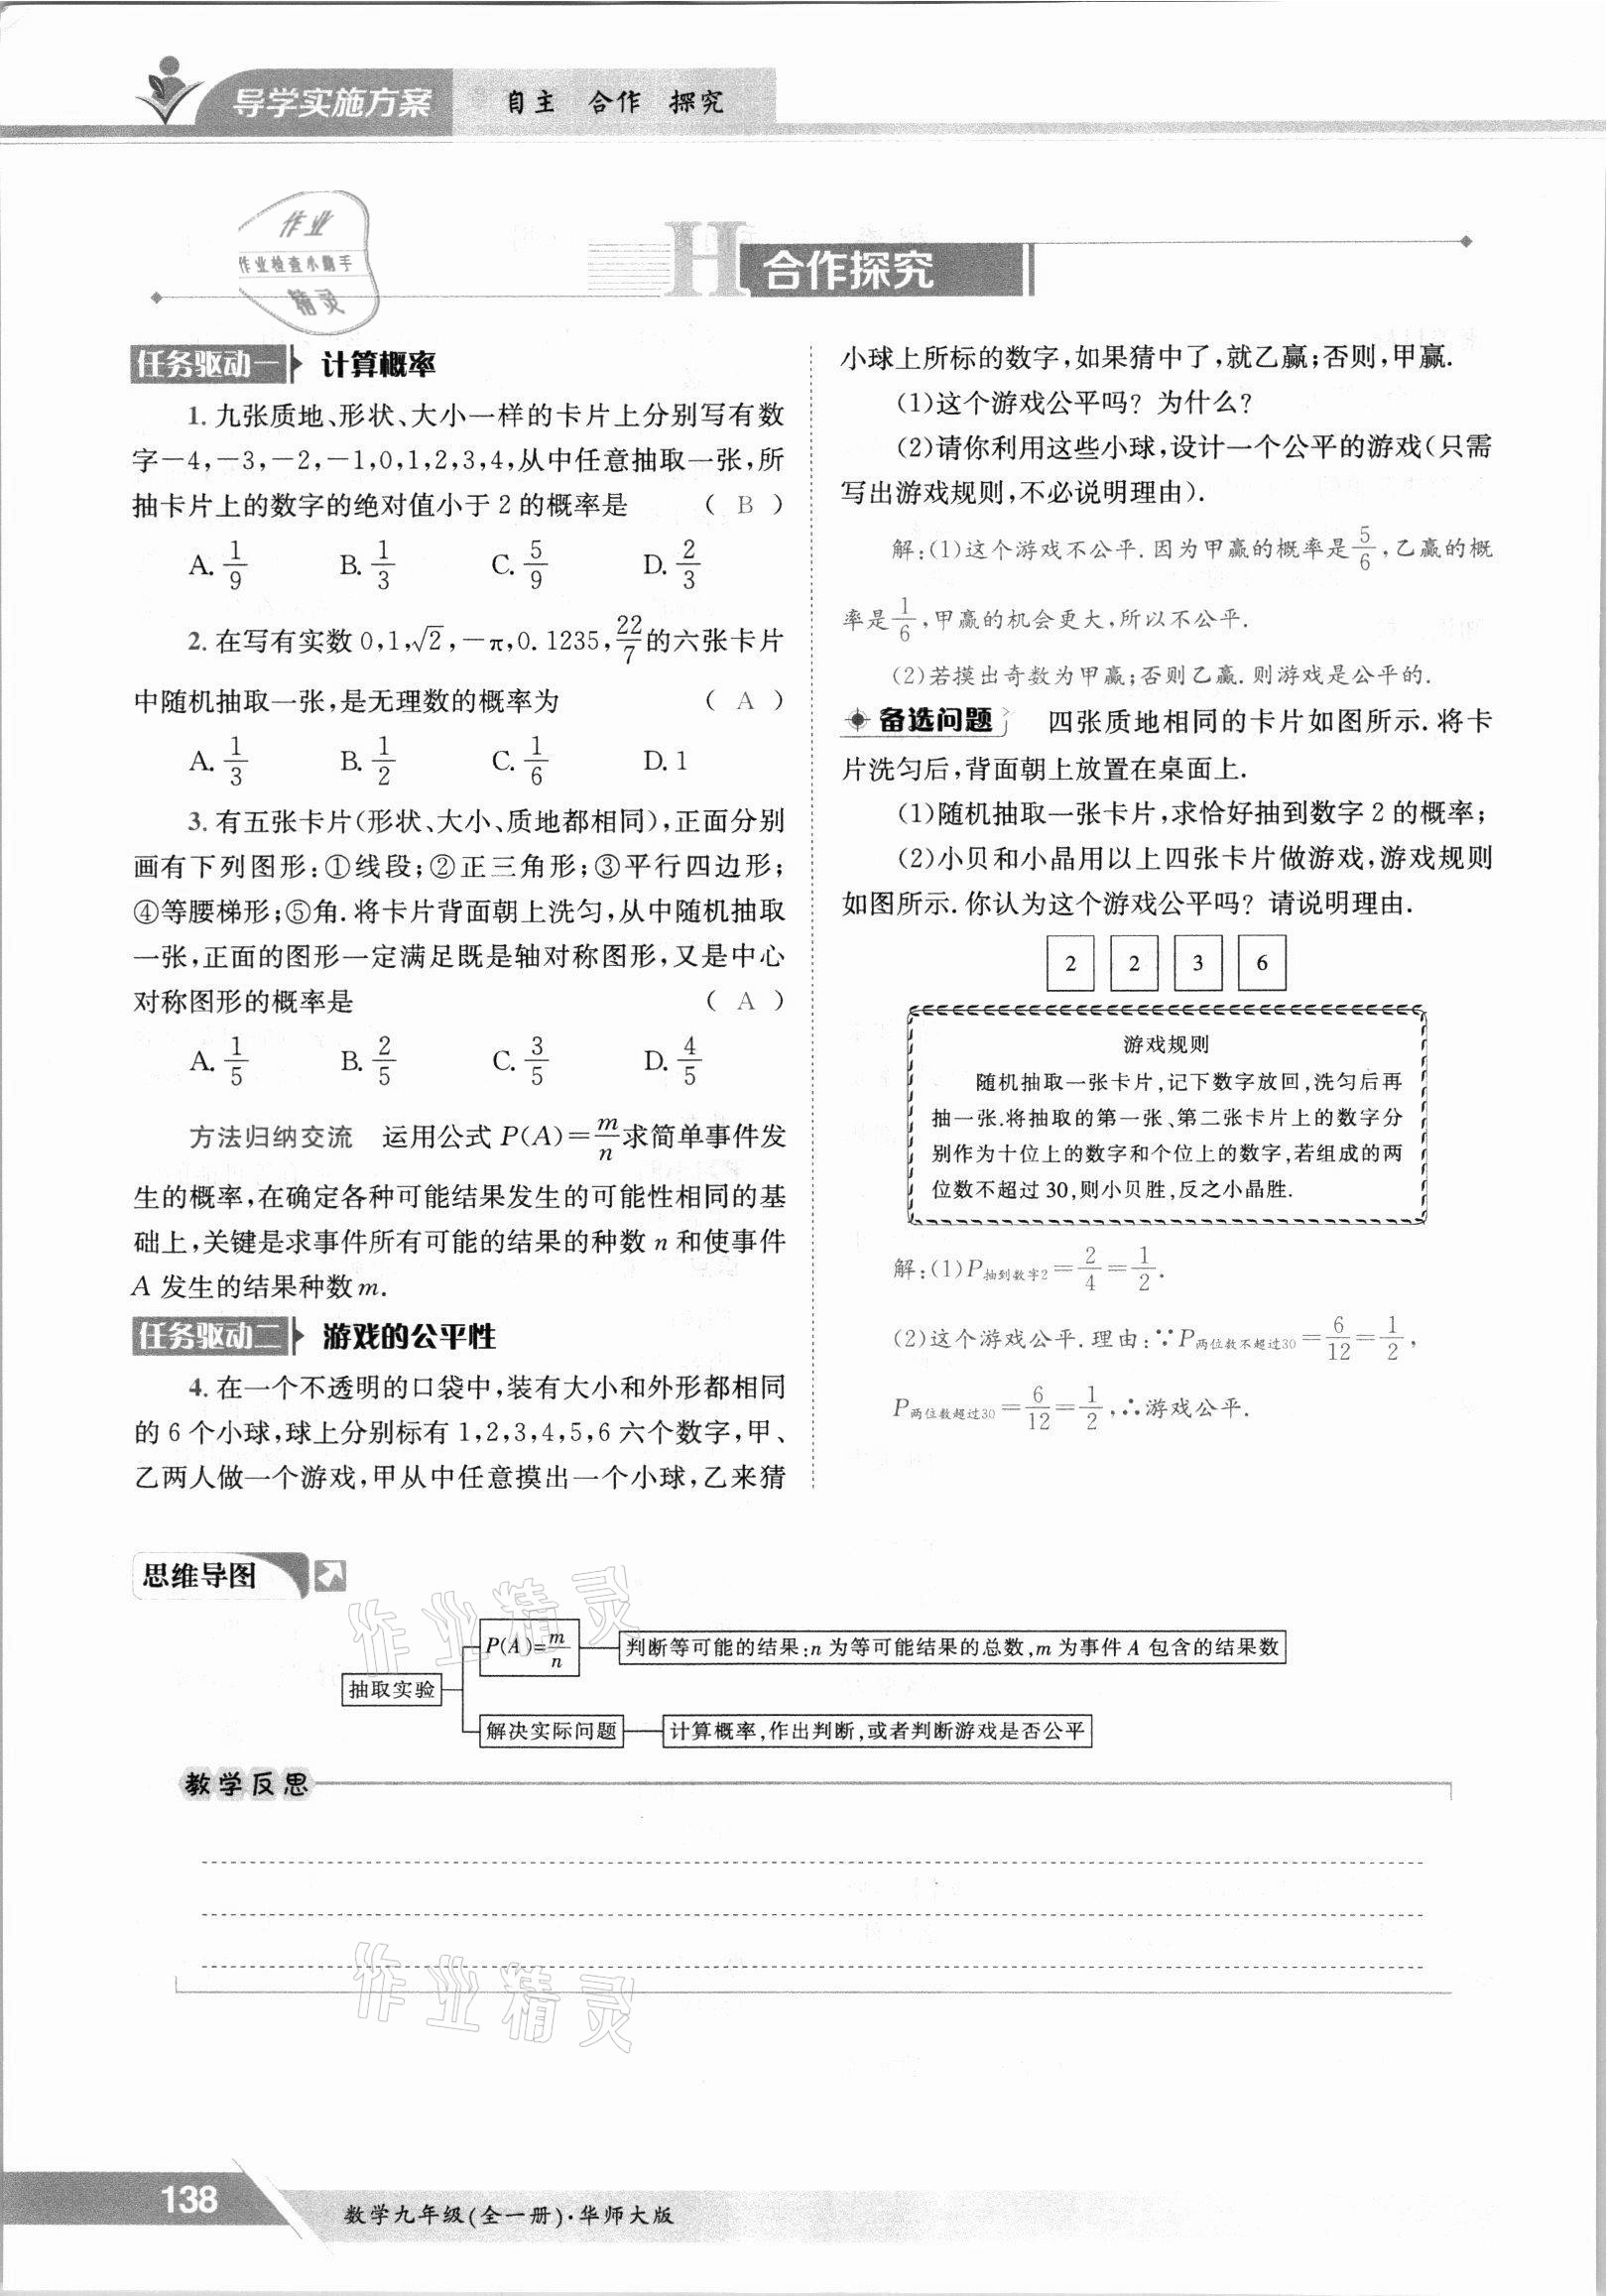 导学实施方案
自主 合作 探究
作业
作业检查小助手
精灵
H 合作探究
任务驱动一 计算概率
1. 九张质地、形状、大小一样的卡片上分别写有数
字-4,-3,-2,-1,0,1,2,3,4,从中任意抽取一张,所
抽卡片上的数字的绝对值小于 2 的概率是 ( B )
A. 1/9 B. 1/3 C. 5/9 D. 2/3
2. 在写有实数 0,1,√2,-π,0.1235,22/7的六张卡片
中随机抽取一张,是无理数的概率为 ( A )
A. 1/3 B. 1/2 C. 1/6 D. 1
3. 有五张卡片(形状、大小、质地都相同),正面分别
画有下列图形:①线段;②正三角形;③平行四边形;
④等腰梯形;⑤角.将卡片背面朝上洗匀,从中随机抽取
一张,正面的图形一定满足既是轴对称图形,又是中心
对称图形的概率是 ( A )
A. 1/5 B. 2/5 C. 3/5 D. 4/5
方法归纳交流 运用公式 P(A)=m/n求简单事件发
生的概率,在确定各种可能结果发生的可能性相同的基
础上,关键是求事件所有可能的结果的种数 n 和使事件
A 发生的结果种数 m.
任务驱动二 游戏的公平性
4. 在一个不透明的口袋中,装有大小和外形都相同
的 6 个小球,球上分别标有 1,2,3,4,5,6 六个数字,甲、
乙两人做一个游戏,甲从中任意摸出一个小球,乙来猜
小球上所标的数字,如果猜中了,就乙赢;否则,甲赢.
(1)这个游戏公平吗? 为什么?
(2)请你利用这些小球,设计一个公平的游戏(只需
写出游戏规则,不必说明理由).
解:(1)这个游戏不公平.因为甲赢的概率是5/6,乙赢的概
率是1/6,甲赢的机会更大,所以不公平.
(2)若摸出奇数为甲赢;否则乙赢.则游戏是公平的.
备选问题 四张质地相同的卡片如图所示.将卡
片洗匀后,背面朝上放置在桌面上.
(1)随机抽取一张卡片,求恰好抽到数字 2 的概率;
(2)小贝和小晶用以上四张卡片做游戏,游戏规则
如图所示.你认为这个游戏公平吗? 请说明理由.
2 2 3 6
游戏规则
随机抽取一张卡片,记下数字放回,洗匀后再
抽一张.将抽取的第一张、第二张卡片上的数字分
别作为十位上的数字和个位上的数字,若组成的两
位数不超过 30,则小贝胜,反之小晶胜.
解:(1)P抽到数字2=2/4=1/2.
(2)这个游戏公平.理由:∵P两位数不超过30=6/12=1/2,
P两位数超过30=6/12=1/2,∴游戏公平.
思维导图
作业精灵
P(A)=m/n 判断等可能的结果:n 为等可能结果的总数,m 为事件 A 包含的结果数
抽取实验
解决实际问题 计算概率,作出判断,或者判断游戏是否公平
教学反思
作业精灵
138
数学九年级(全一册)·华师大版